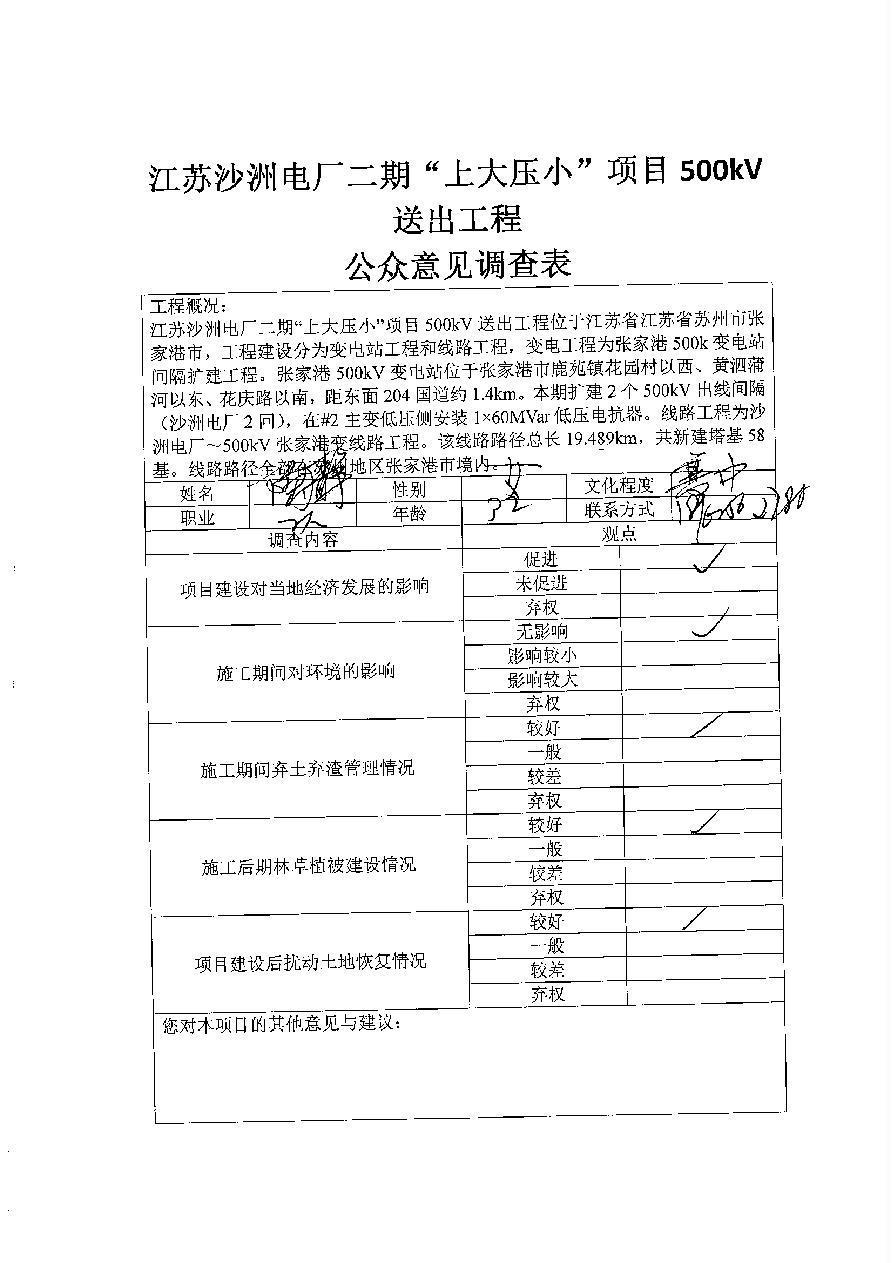 江苏沙洲电厂二期“上大压小”项目 500kV
送出工程
公众意见调查表
工程概况：
江苏沙洲电厂二期“上大压小”项目 500kV 送出工程位于江苏省江苏省苏州市张
家港市，工程建设分为变电站工程和线路工程，变电工程为张家港 500k 变电站
间隔扩建工程。张家港 500kV 变电站位于张家港市鹿苑镇花园村以西、黄泗蒲
河以东、花庆路以南，距东面 204 国道约 1.4km。本期扩建 2 个 500kV 出线间隔
（沙洲电厂 2 回），在#2 主变低压侧安装 1×60MVar 低压电抗器。线路工程为沙
洲电厂～500kV 张家港变线路工程。该线路路径总长 19.489km，共新建塔基 58
基。线路路径全部在 地区张家港市境内。
姓名 性别 女 文化程度 高中
职业 年龄 联系方式
调查内容 观点
项目建设对当地经济发展的影响
促进 ✓
未促进
弃权
施工期间对环境的影响
无影响 ✓
影响较小
影响较大
弃权
施工期间弃土弃渣管理情况
较好 ✓
一般
较差
弃权
施工后期林草植被建设情况
较好 ✓
一般
较差
弃权
项目建设后扰动土地恢复情况
较好 ✓
一般
较差
弃权
您对本项目的其他意见与建议：